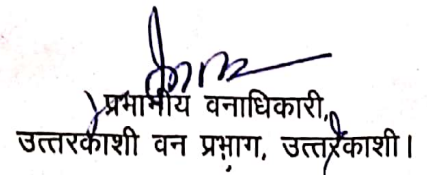 प्रभागीय वनाधिकारी,
उत्तरकाशी वन प्रभाग, उत्तरकाशी।